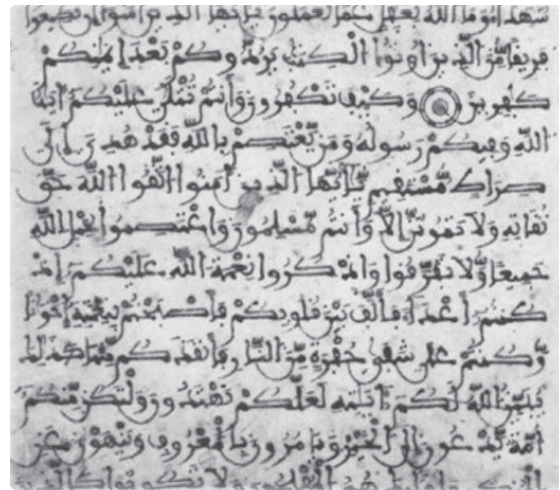 شهداء وما الله بغفل عما تعملون يأيها الذين ءامنوا إن تطيعوا
فريقا من الذين أوتوا الكتب يردوكم بعد إيمنكم
كفرين وكيف تكفرون وأنتم تتلى عليكم ءايت
الله وفيكم رسوله ومن يعتصم بالله فقد هدي إلى
صرط مستقيم يأيها الذين ءامنوا اتقوا الله حق
تقاته ولا تموتن إلا وأنتم مسلمون واعتصموا بحبل الله
جميعا ولا تفرقوا واذكروا نعمة الله عليكم إذ
كنتم أعداء فألف بين قلوبكم فأصبحتم بنعمته إخوانا
وكنتم على شفى حفرة من النار فأنقذكم منها كذلك
يبين الله لكم ءايته لعلكم تهتدون ولتكن منكم
أمة يدعون إلى الخير ويأمرون بالمعروف وينهون عن
المنكر وأولئك هم المفلحون ولا تكونوا كالذين